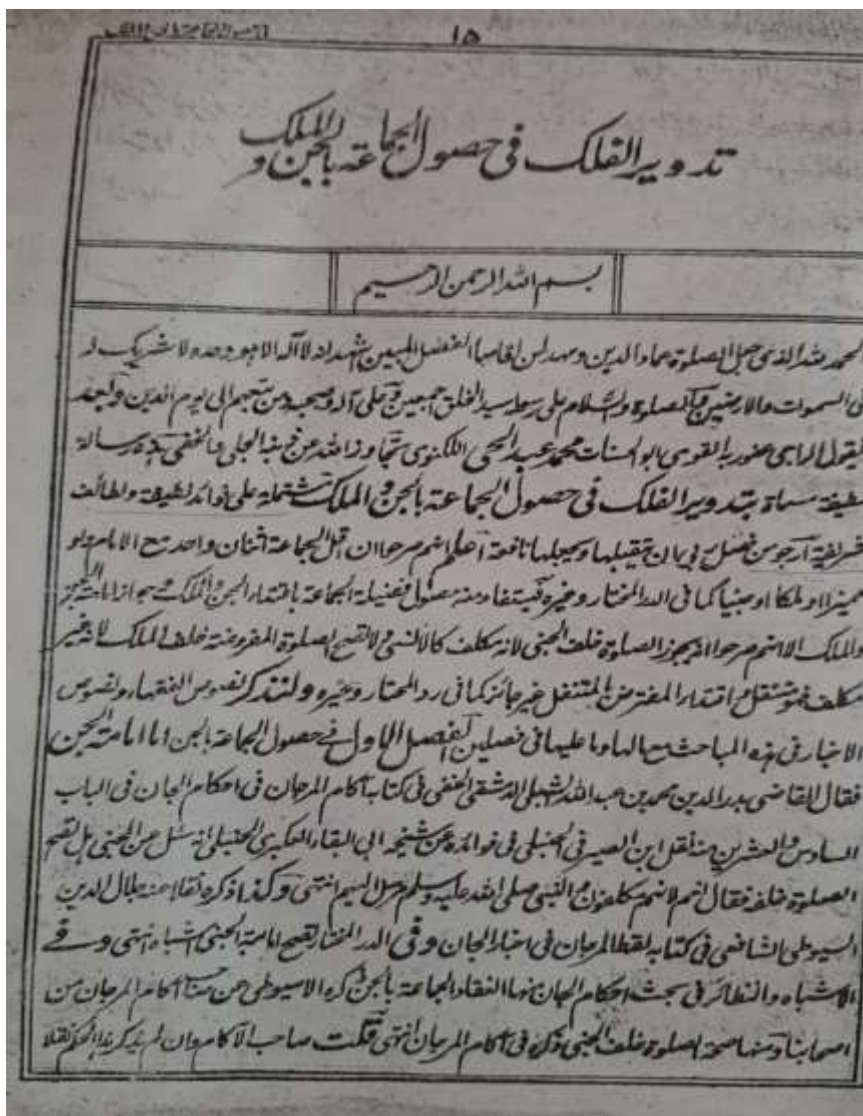 ١٥
تدوير الفلك فى حصول الجماعة بالجن و الملك
بسم الله الرحمن الرحيم
الحمد لله الذى جعل الصلوة عماد الدين ووعد لمن اقامها الفضل المبين اشهد انه لا اله الا هو وحده لا شريك له
فى السموات والارضين والصلوة والسلام على رسوله سيد الخلق اجمعين وعلى آله وصحبه ومن تبعهم الى يوم الدين وبعد
فيقول الراجى عفو ربه القوى ابو الحسنات محمد عبد الحى اللكنوى تجاوز الله عن ذنبه الجلى والخفى هذه رسالة
لطيفة مسماة بتدوير الفلك فى حصول الجماعة بالجن والملك مشتملة على فوائد لطيفة ولطائف
شريفة ارجو من فضل ربى ان يتقبلها ويجعلها نافعة اعلم انهم صرحوا ان اقل الجماعة اثنان واحد مع الامام ولو
مميزا او ملكا او جنيا كما فى الدر المختار وغيره فيستفاد منه حصول فضيلة الجماعة باقتداء الجن والملك وجواز امامة الجن
والملك الا انهم صرحوا انه يجوز الصلوة خلف الجنى لانه مكلف كالانسى ولا تصح الصلوة المفروضة خلف الملك لانه غير
مكلف فهو متنفل واقتداء المفترض بالمتنفل غير جائز كما فى رد المحتار وغيره ولنذكر نصوص الفقهاء ونصوص
الاخبار فى هذه المباحث مع مالها وما عليها فى فصلين الفصل الاول فى حصول الجماعة بالجن اما امامة الجن
فقال القاضى بدر الدين محمد بن عبد الله الشبلى الدمشقى الحنفى فى كتابه آكام المرجان فى احكام الجان فى الباب
السادس والعشرين منه نقل ابن الصيرفى الحنبلى فى فوائده عن شيخه ابى البقاء العكبرى الحنبلى انه سئل عن الجنى هل تصح
الصلوة خلفه فقال نعم لانهم مكلفون والنبى صلى الله عليه وسلم مرسل اليهم انتهى وكذا ذكره نقلا عنه جلال الدين
السيوطى الشافعى فى كتابه لقط المرجان فى اخبار الجان وفى الدر المختار تصح امامة الجنى اشباه انتهى وفى
الاشباه والنظائر فى بحث احكام الجان منها انعقاد الجماعة بالجن ذكره الاسيوطى عن صاحب آكام المرجان من
اصحابنا ومنها صحة الصلوة خلف الجنى ذكره فى آكام المرجان انتهى قلت صاحب الآكام وان لم يذكر هذا الحكم نقلا